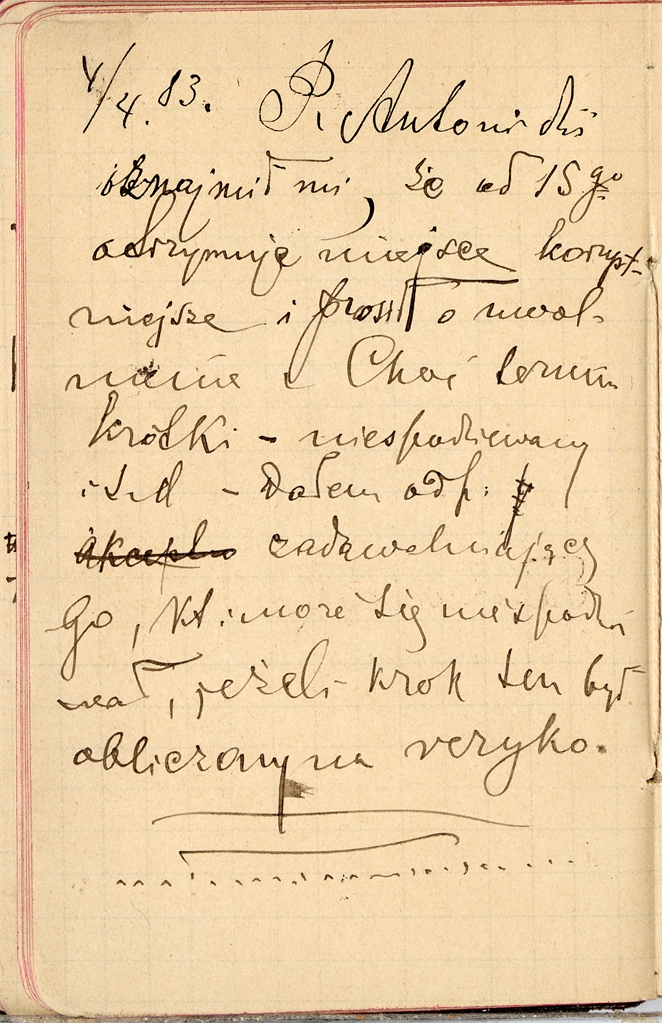 4/4.83. P. Antoni dziś
oznajmił mi, że od 15go
otrzymuje miejsce korzyst-
niejsze i prosił o uwol-
nienie. Choć termin
krótki – niespodziewany
i t.d – Dałem odp:
zadawalniającą
Go, kt: może się niespodzie
wał, jeżeli krok ten był
obliczony na ryzyko.